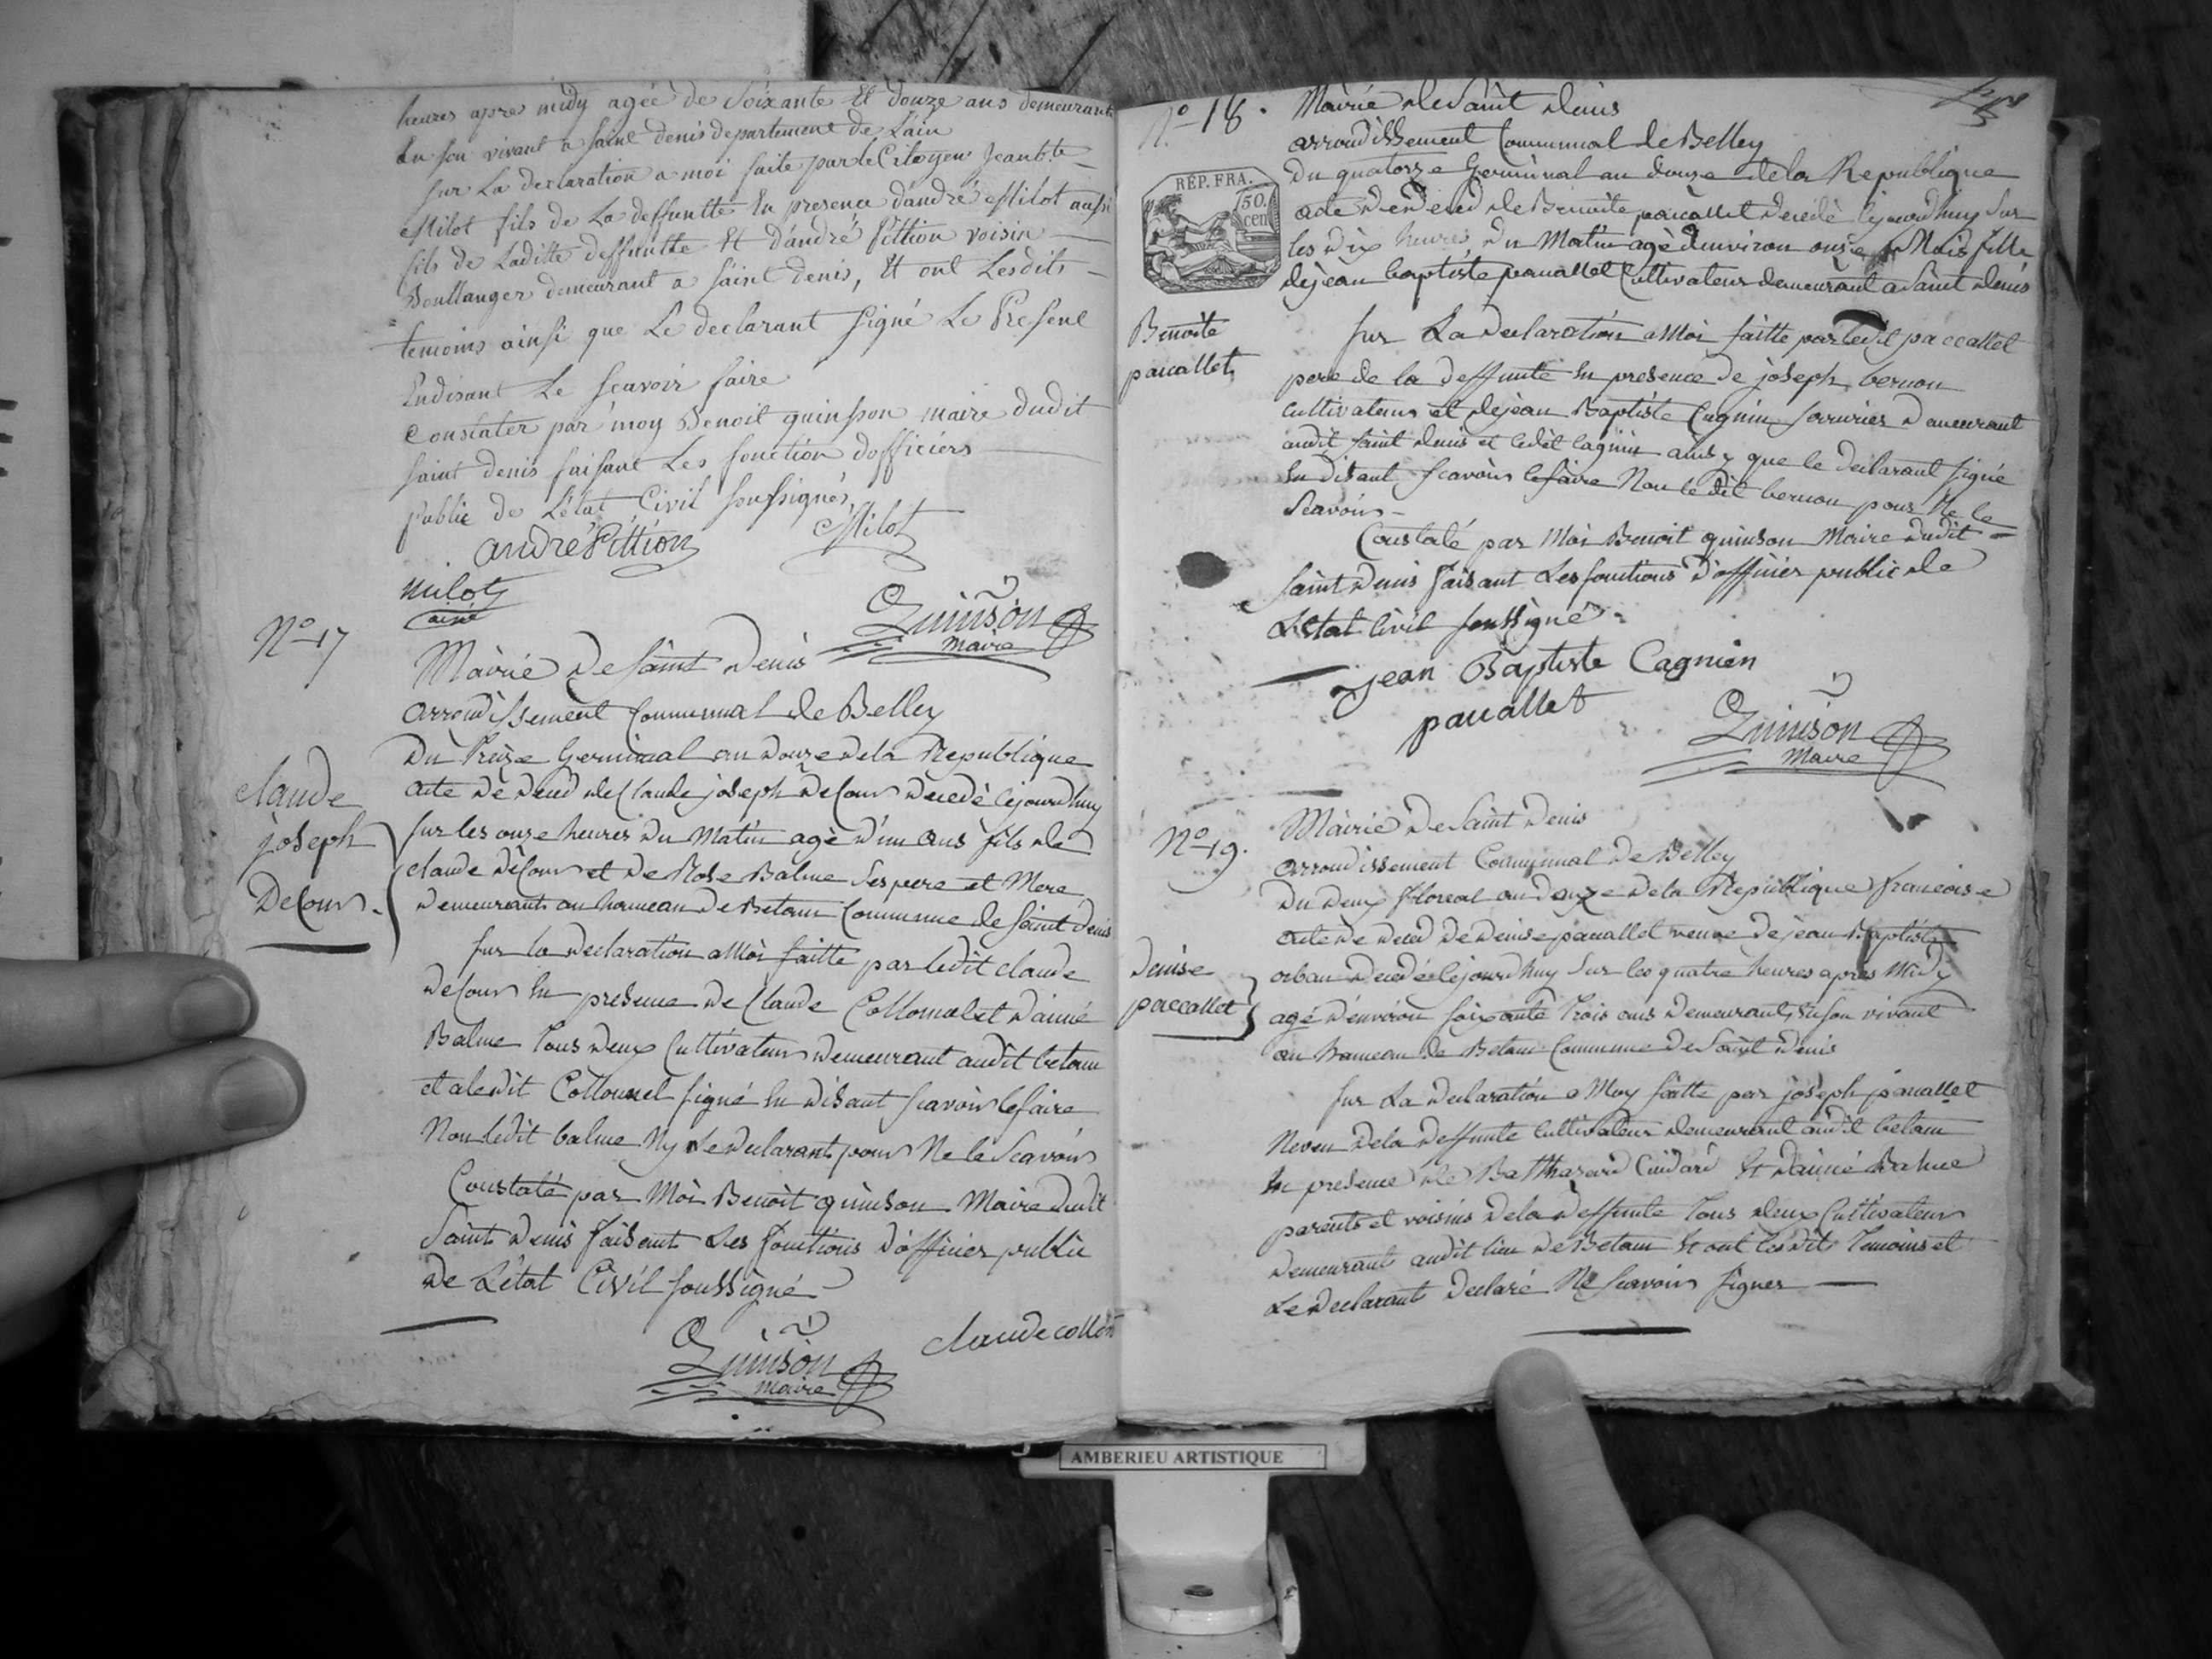 heures apres midy agée de Soixante Et douze ans demeurante
En son vivant a saint denis departement de L'ain
sur La declaration a moi faite par le Citoyen Jean bte
Milot fils de La deffuntte En presence d'andré Milot aussi
fils de Laditte deffuntte Et d'andré Pittion voisin
Boullanger demeurant a saint denis, Et ont Lesdits
temoins ainsi que Le declarant signé Le Present
Endisant Le scavoir faire
Constater par moy Benoit quinson maire dudit
saint denis faisant Les fonction d'officiers
public de L'état Civil soussignés
andré Pittion Milot
milot
ainé
Quinson
Maire
No 17
Mairie de saint denis
arrondissement Communal de Belley
Du treize Germinal an douze de la Republique
acte de deces de Claude joseph deCour decedé cejourdhuy
sur les onze heures du matin agé d'un ans fils de
claude deCour et de Rose Balme ses pere et Mere
demeurants au hameau de Betam Commune de saint denis
claude
joseph
DeCour
sur la declaration a Moi faitte par ledit claude
deCour En presence de Claude Collomb et d'aimé
Balme tous deux Cultivateurs demeurant audit betam
et a ledit signé En disant scavoir le faire
Non ledit balme Ny le declarant pour Ne le Scavoir
Constaté par Moi Benoit quinson Maire dudit
Saint denis faisant Les fonctions d'officier public
de L'état Civil soussigné
Quinson
Maire
claude
No 18.
Mairie de saint denis
arrondissement Communal de Belley
Du quatorze Germinal an douze de la Republique
acte de deces de Benoite paccallet decedé cejourdhuy sur
les dix heures du Matin agé d'environ onze Mois fille
de jean baptiste paccallet Cultivateur demeurant a saint denis
REP. FRA.
50.
cen
Benoite
paccallet
sur La declaration a Moi faitte par ledit paccallet
pere de la deffunte En presence de joseph bernon
Cultivateur et de jean Baptiste Cagnin serrurier demeurant
audit saint denis et ledit Cagnin ainsy que le declarant signé
En disant scavoir le faire Non ledit bernon pour Ne le
Scavoir
Constaté par Moi Benoit quinson Maire dudit
saint denis faisant Les fonctions d'officier public de
L'Etat Civil soussigné
Jean Baptiste Cagnien
paccallet
Quinson
Maire
No 19.
Mairie de Saint denis
arrondissement Communal de Belley
Du deux floreal an douze de la Republique francoise
acte de deces de denise paccallet veuve de jean Baptiste
orban decedé cejourdhuy sur les quatre heures apres Midy
agé d'environ soixante trois ans demeurant En son vivant
au hameau de Betam Commune de Saint denis
denise
paccallet
sur La declaration a Moy faitte par joseph paccallet
Neveu de la deffunte Cultivateur demeurant audit betam
En presence de Balthazard Et d'aimé Balme
parents et voisins de la deffunte tous deux Cultivateurs
demeurant audit lieu de Betam Et ont lesdits temoins et
Le declarant declaré Ne scavoir signer
AMBERIEU ARTISTIQUE